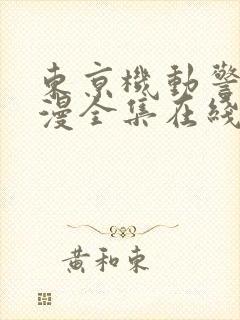 東京機動警
漫全集在綫
黃和東